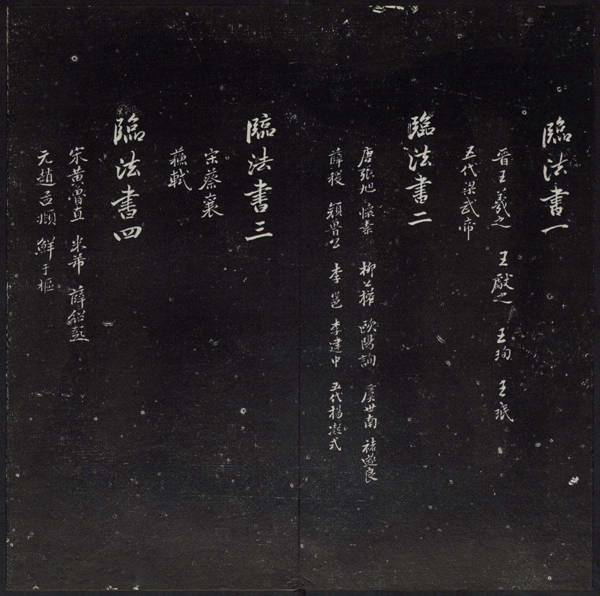 臨法書一
晋王羲之 王獻之 王珣 王珉
五代梁武帝
臨法書二
唐張旭 懷素 柳公權 歐陽詢 虞世南 褚遂良
薛稷 顔魯公 李邕 李建中 五代楊凝式
臨法書三
宋蔡襄
蘓軾
臨法書四
宋黄魯直 米芾 薛紹彭
元趙孟頫 鮮于樞